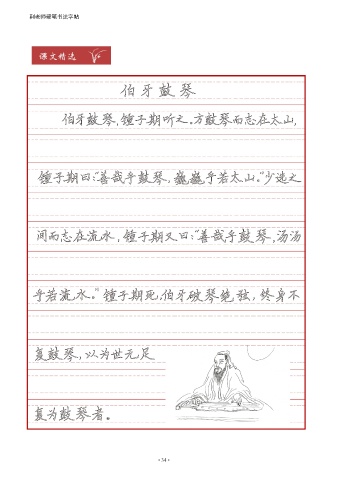 田老师硬笔书法字帖
课文精选
伯牙鼓琴
伯牙鼓琴,锺子期听之。方鼓琴而志在太山,
锺子期曰:“善哉乎鼓琴,巍巍乎若太山。”少选之
间而志在流水,锺子期又曰:“善哉乎鼓琴,汤汤
乎若流水。”锺子期死,伯牙破琴绝弦,终身不
复鼓琴,以为世无足
复为鼓琴者。
·34·